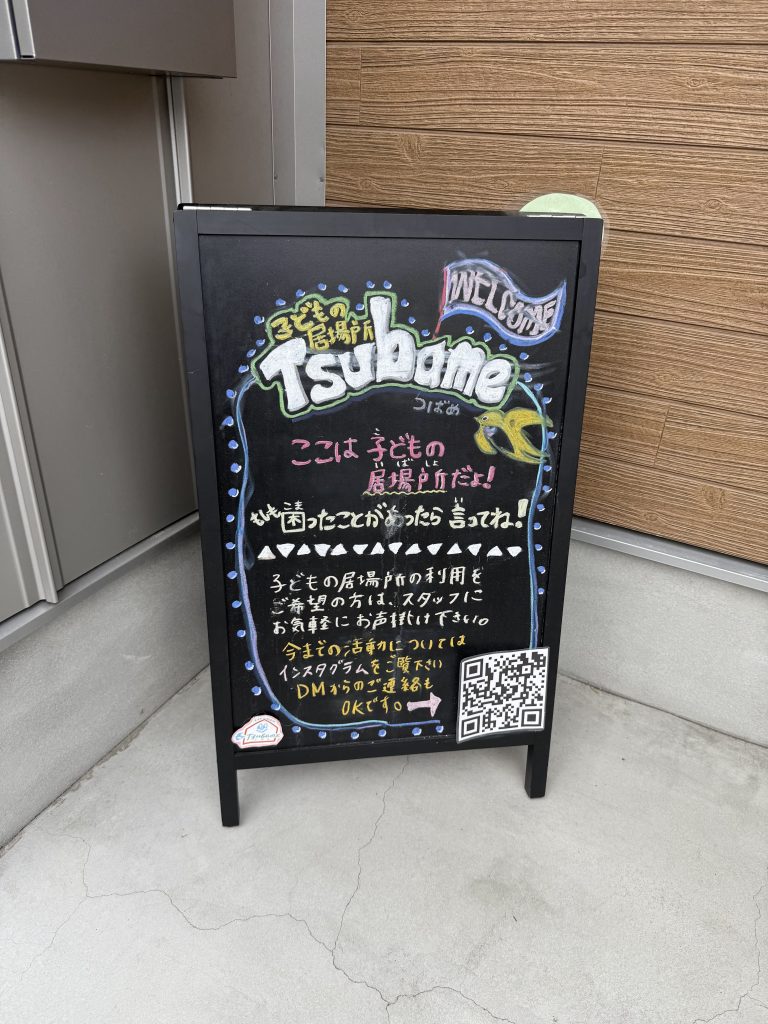 WELCOME
子どもの
居場所
Tsubame
つばめ
ここは 子どもの
いばしょ
居場所だよ!
もしも困ったことがあったら 言ってね!
子どもの居場所の利用を
ご希望の方は、スタッフに
お気軽にお声掛け下さい。
今までの活動については
インスタグラムをご覧下さい
DMからのご連絡も
OKです。
Tsubame